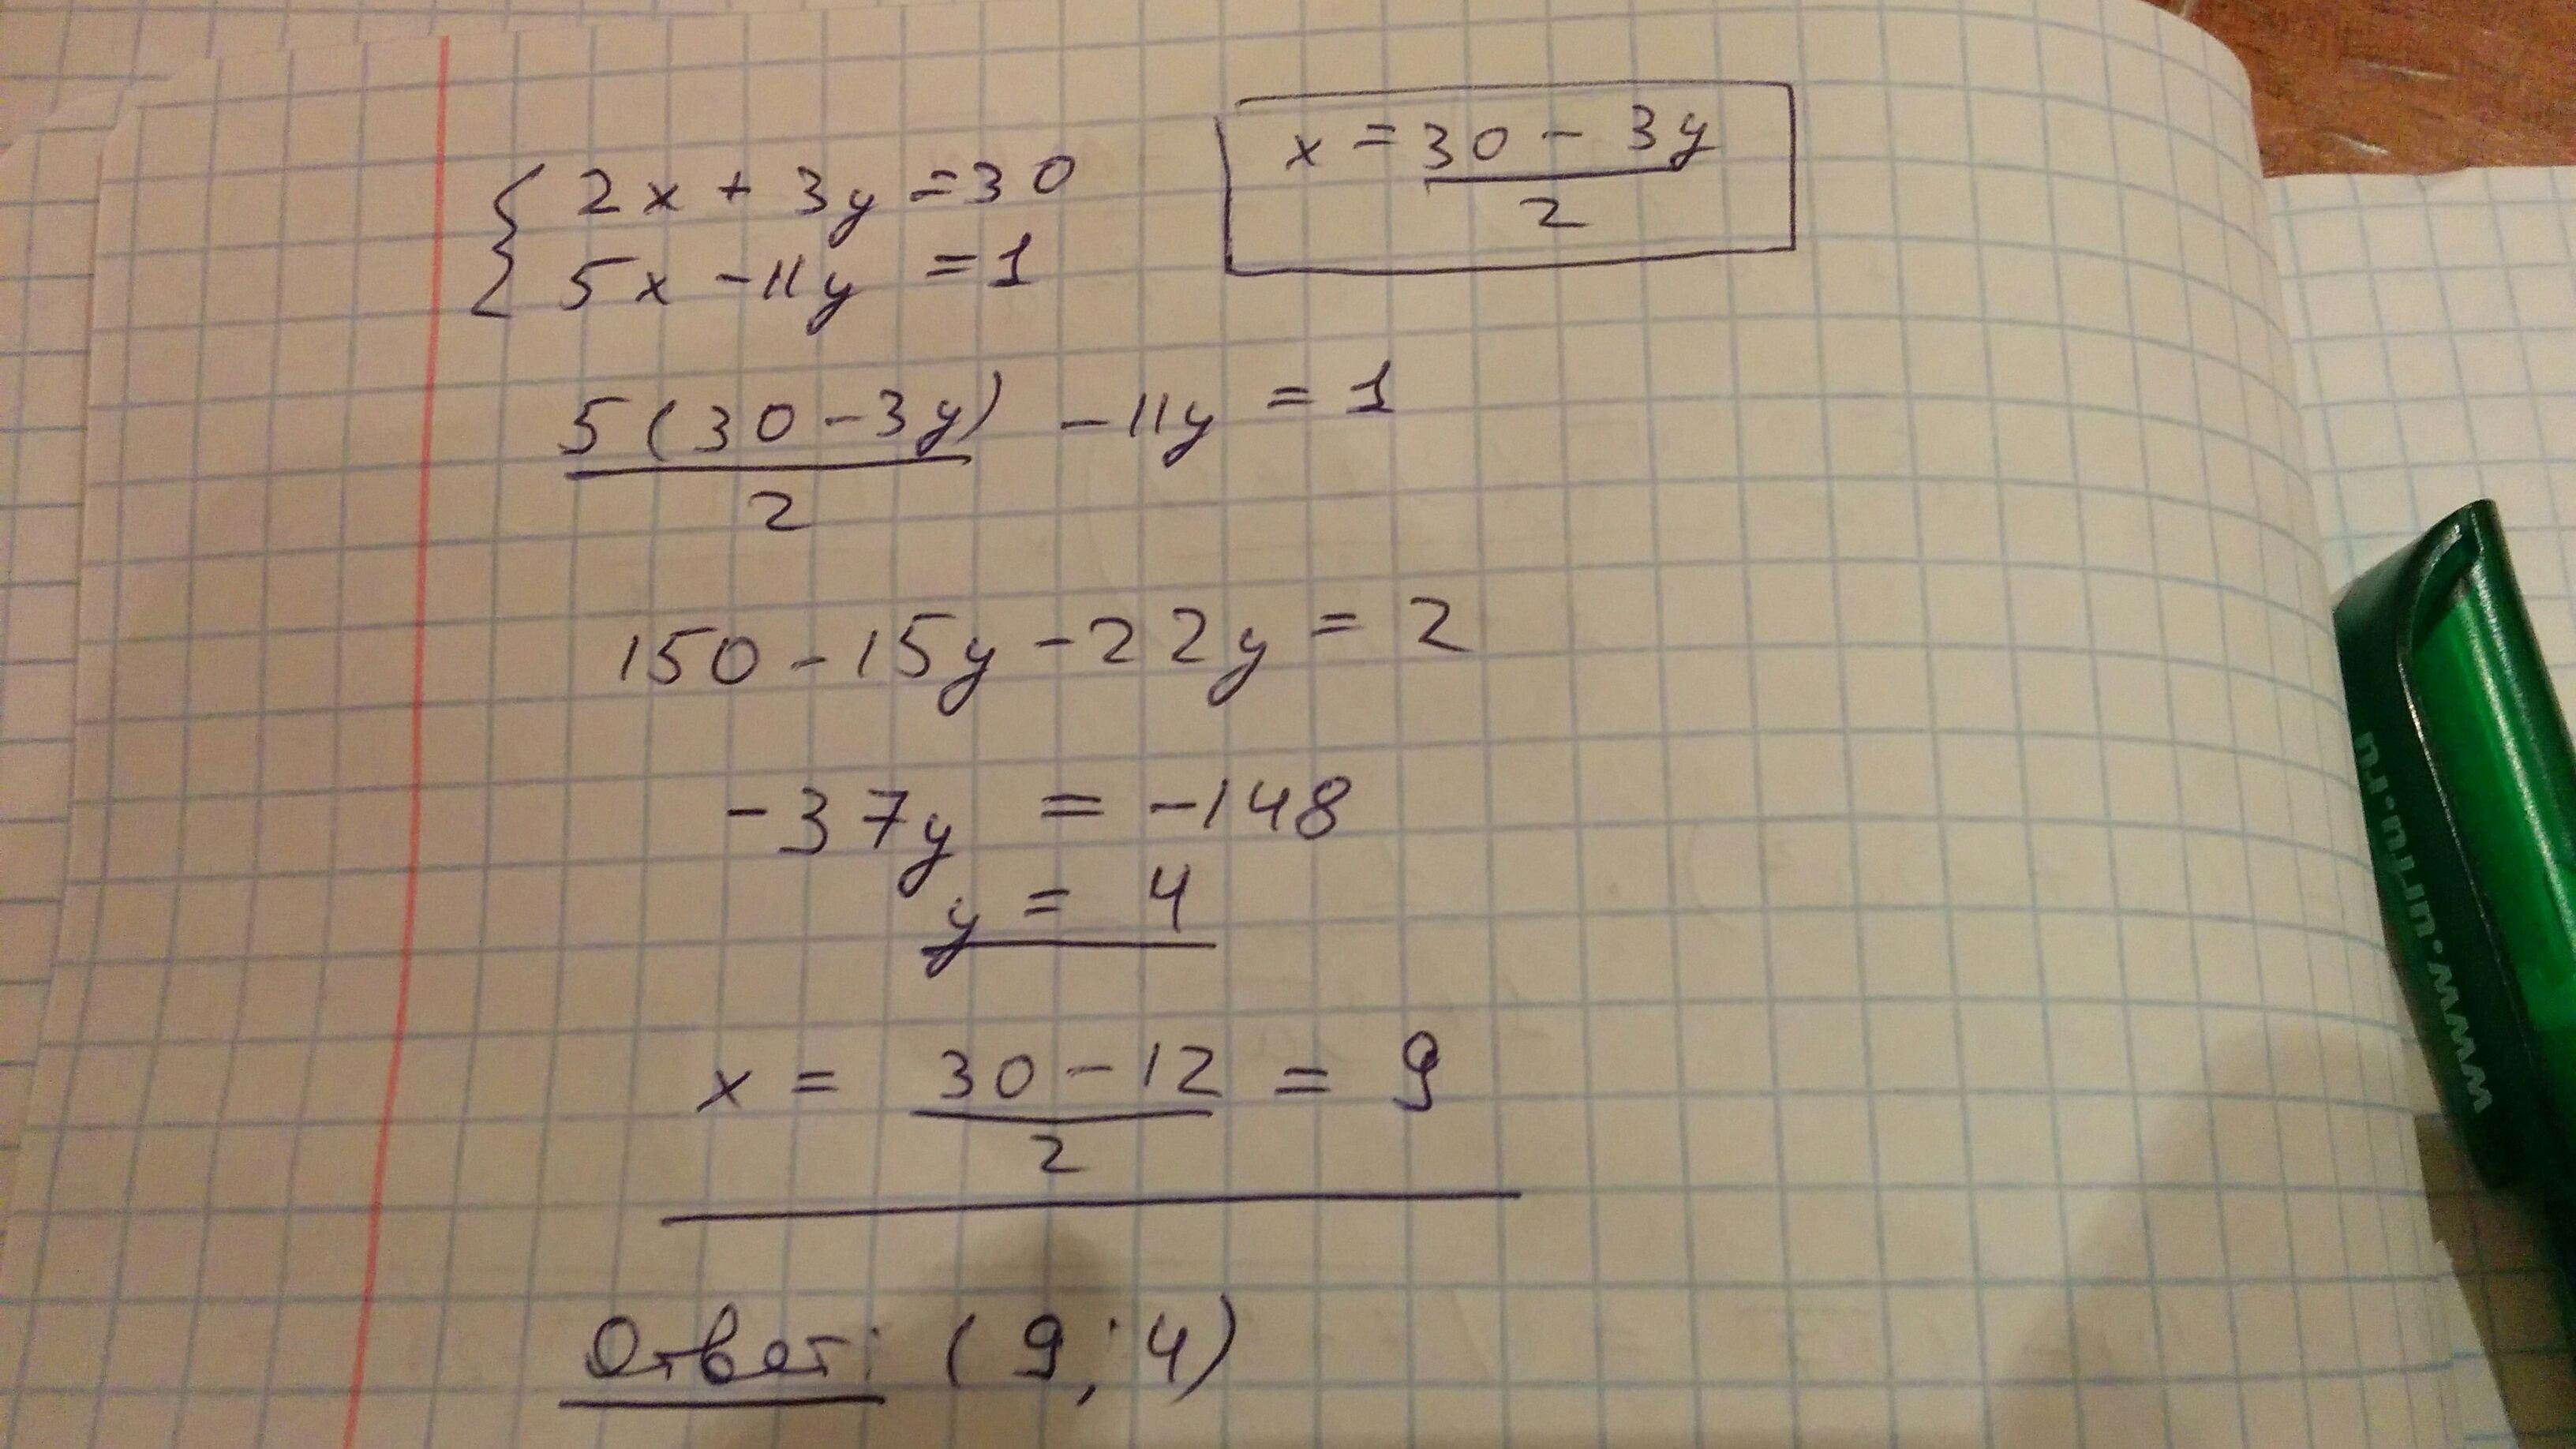 { 2x + 3y = 30
5x - 11y = 1
x = (30 - 3y)/2
5(30 - 3y)/2 - 11y = 1
150 - 15y - 22y = 2
-37y = -148
y = 4
x = (30 - 12)/2 = 9
Ответ: (9; 4)
www.urfu.ru